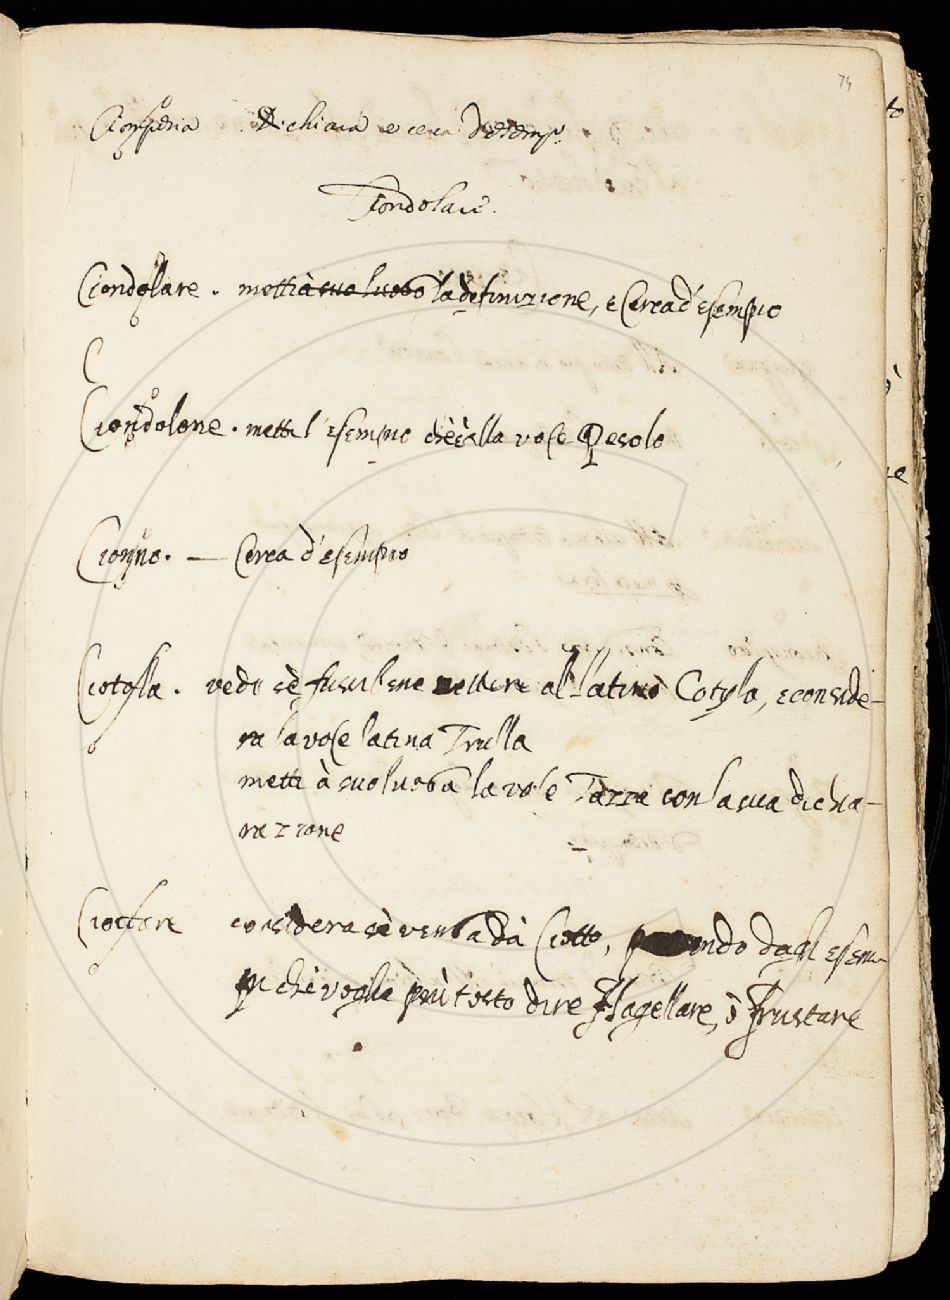 74
Dichiara e cerca d'esemp.
Ciondolare.
Ciondolare. metti à suo luogo la definizione, e Cerca d'esempio
C
Ciondolone. metti l'esempio ch'è alla voce Pesolo
— Cerca d'esempio
Ciotola. vedi sè fusse bene mettere al latino Cotyla, e conside-
ra la voce latina Trulla
metti à suo luogo la voce Tazza con la sua dichia-
razzione
considera sè venga dà Ciotto, dagl'esem-
pi ché voglia più tosto dire Flagellare, ò Frustare